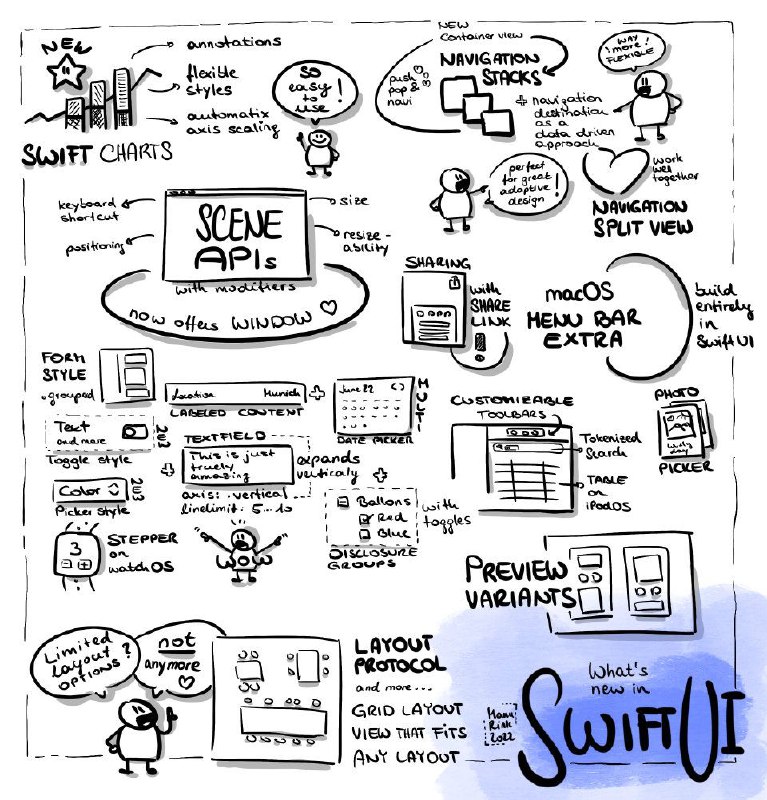 NEW
annotations
flexible
styles
automatix
axis scaling
SWIFT CHARTS
SO
easy
to
use!
NEW
Container view
NAVIGATION
STACKS
push
pop &
navi
+ navigation
destination
as a
data driven
approach
WAY
more!
FLEXIBLE
perfect
for great
adaptive
design!
work
well
together
NAVIGATION
SPLIT VIEW
keyboard
shortcut
positioning
SCENE
APIs
size
resize-
ability
with modifiers
now offers WINDOW
SHARING
with
SHARE
LINK
macOS
MENU BAR
EXTRA
build
entirely
in
SwiftUI
FORM
STYLE
.grouped
Location Munich
LABELED CONTENT
June 22 < >
MULTI
DATE PICKER
Text
and more
Toggle style
TEXTFIELD
This is just
truely
amazing
expands
verticaly
axis: .vertical
linelimit: 5...10
Color
Picker Style
Ballons
Red
Blue
DISCLOSURE
GROUPS
with
toggles
3
STEPPER
on
watchOS
WOW
CUSTOMIZABLE
TOOLBARS
Tokenized
Search
TABLE
on
iPadOS
PHOTO
PICKER
PREVIEW
VARIANTS
Limited
layout
OPTIONS?
not
anymore
LAYOUT
PROTOCOL
and more...
GRID LAYOUT
VIEW THAT FITS
ANY LAYOUT
Manu
Rink
2022
What's
new in
SWIFTUI